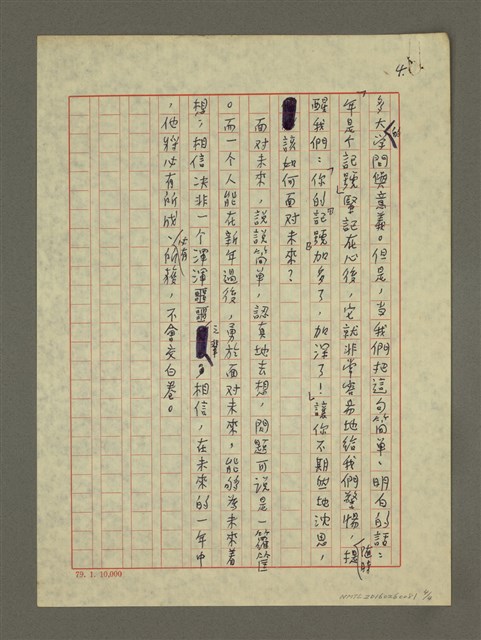 4.
多大的学問與意義。但是，当我們把這句簡单、明白的話：
「年是个記號」緊記在心後，它就非常容易地給我們警惕，隨時提
醒我們：「你的記號加多了，加深了！」讓你不期然地沈思，
該如何面对未來？
面对未來，說說简单，認真地去想，問題可說是一籮筐
。而一个人能在新年過後，勇於面对未來，能够為未來着
想，相信决非一个渾渾噩噩之輩，相信，在未來的一年中
，他將必有所成，必有所穫，不會交白卷。
79. 1. 10,000
NMTL20160260081 4/4